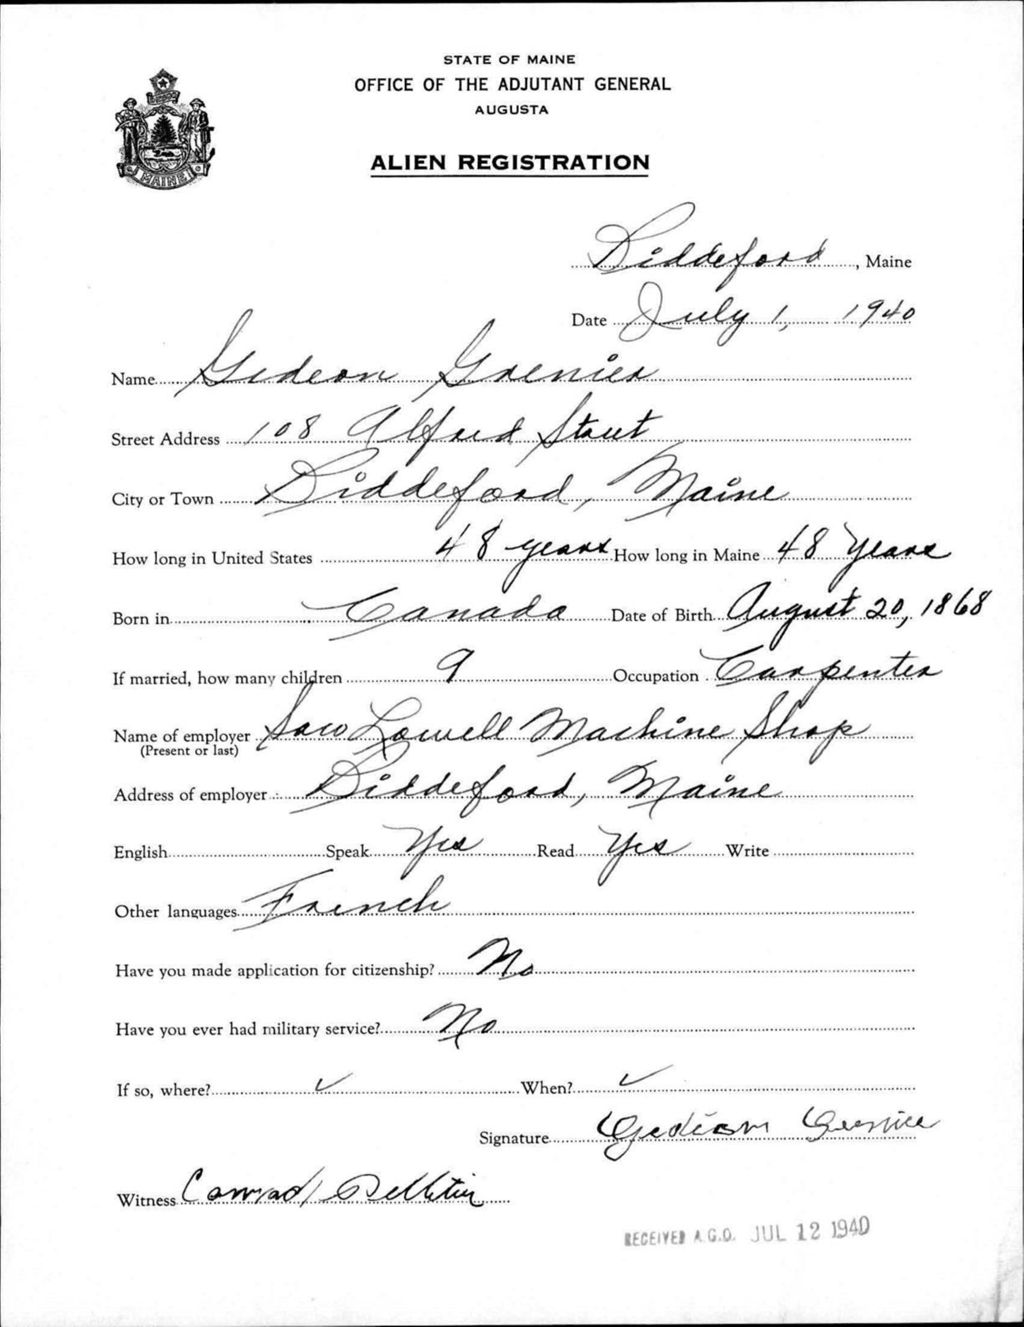 STATE OF MAINE
OFFICE OF THE ADJUTANT GENERAL
AUGUSTA
ALIEN REGISTRATION
MAINE
Biddeford, Maine
Date July 1, 1940
Name Gedeon Grenier
Street Address 108 Alfred Street
City or Town Biddeford, Maine
How long in United States 48 years How long in Maine 48 years
Born in Canada Date of Birth August 20, 1868
If married, how many children 9 Occupation Carpenter
Name of employer Saco Lowell Machine Shop
(Present or last)
Address of employer Biddeford, Maine
English Speak Yes Read Yes Write
Other languages French
Have you made application for citizenship? No
Have you ever had military service? No
If so, where? ✓ When? ✓
Signature Gedeon Grenier
Witness Conrad Pelletier
RECEIVED A.G.O. JUL 12 1940